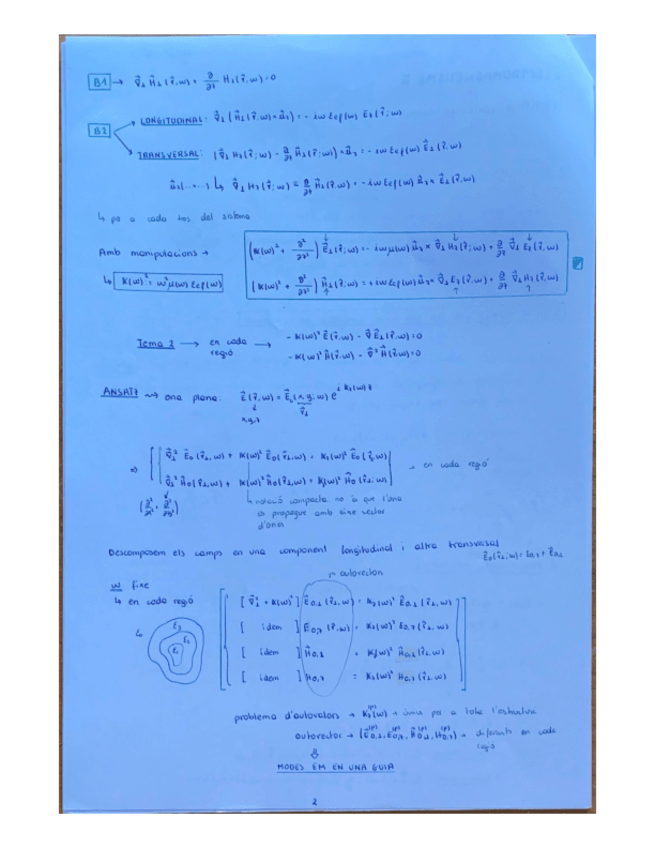 B1 → ∇⃗⊥ H⃗⊥(r⃗,ω) + ∂/∂z Hz(r⃗,ω) = 0
B2
LONGITUDINAL: ∇⃗⊥(H⃗⊥(r⃗,ω)×u⃗z) = -iω εcf(ω) Ez(r⃗;ω)
TRANSVERSAL: (∇⃗⊥Hz(r⃗;ω) - ∂/∂z H⃗⊥(r⃗;ω))×u⃗z = -iω εcf(ω) E⃗⊥(r⃗,ω)
↳ ∇⃗⊥Hz(r⃗;ω) = ∂/∂z H⃗⊥(r⃗,ω) = -iω εcf(ω) u⃗z × E⃗⊥(r⃗,ω)
↳ per a cada tros del sistema
Amb manipulacions →
(K(ω)² + ∂²/∂z²) E⃗⊥(r⃗;ω) = -iωμ(ω) u⃗z × ∇⃗⊥Hz(r⃗;ω) + ∂/∂z ∇⃗⊥Ez(r⃗,ω)
↳ K(ω)² = ω²μ(ω) εcf(ω)
(K(ω)² + ∂²/∂z²) H⃗⊥(r⃗,ω) = +iω εcf(ω) u⃗z × ∇⃗⊥Ez(r⃗,ω) + ∂/∂z ∇⃗⊥Hz(r⃗,ω)
Tema 2 → en cada regió →
-K(ω)² E⃗(r⃗,ω) - ∇⃗ E⃗(r⃗,ω) = 0
-K(ω)² H⃗(r⃗,ω) - ∇⃗² H⃗(r⃗,ω) = 0
ANSATZ → ona plana: E⃗(r⃗,ω) = E⃗₀(x,y;ω) e^{i Kz(ω) z}
x,y,z r⃗⊥
⇒ ∇⃗⊥² E⃗₀(r⃗⊥,ω) + K(ω)² E⃗₀(r⃗⊥,ω) = Kz(ω)² E⃗₀(r⃗,ω)
∇⃗⊥² H⃗₀(r⃗⊥,ω) + K(ω)² H⃗₀(r⃗⊥,ω) = Kz(ω)² H⃗₀(r⃗⊥;ω) → en cada regió
(∂²/∂x², ∂²/∂y²)
↳ notació compacta: no és que l'ona
es propague amb eixe vector
d'ona
Descomposem els camps en una component longitudinal i altra transversal
E⃗₀(r⃗⊥;ω) = E₀,z + E⃗₀,⊥
autovectors
ω fixe
↳ en cada regió
[∇⃗⊥² + K(ω)²] E⃗₀,⊥(r⃗⊥,ω) = Kz(ω)² E⃗₀,⊥(r⃗⊥,ω)
[ idem ] E₀,z(r⃗,ω) = Kz(ω)² E₀,z(r⃗⊥,ω)
[ idem ] H⃗₀,⊥ = Kz(ω)² H⃗₀,⊥(r⃗⊥,ω)
[ idem ] H₀,z = Kz(ω)² H₀,z(r⃗⊥,ω)
ε₃
ε₂
ε₁
problema d'autovalors → Kz⁽ᵖ⁾(ω) → únic per a tota l'estructura
autovector → (E⃗₀,⊥⁽ᵖ⁾, E₀,z⁽ᵖ⁾, H⃗₀,⊥⁽ᵖ⁾, H₀,z⁽ᵖ⁾) → diferents en cada
regió
⇓
MODES EM EN UNA GUIA
2